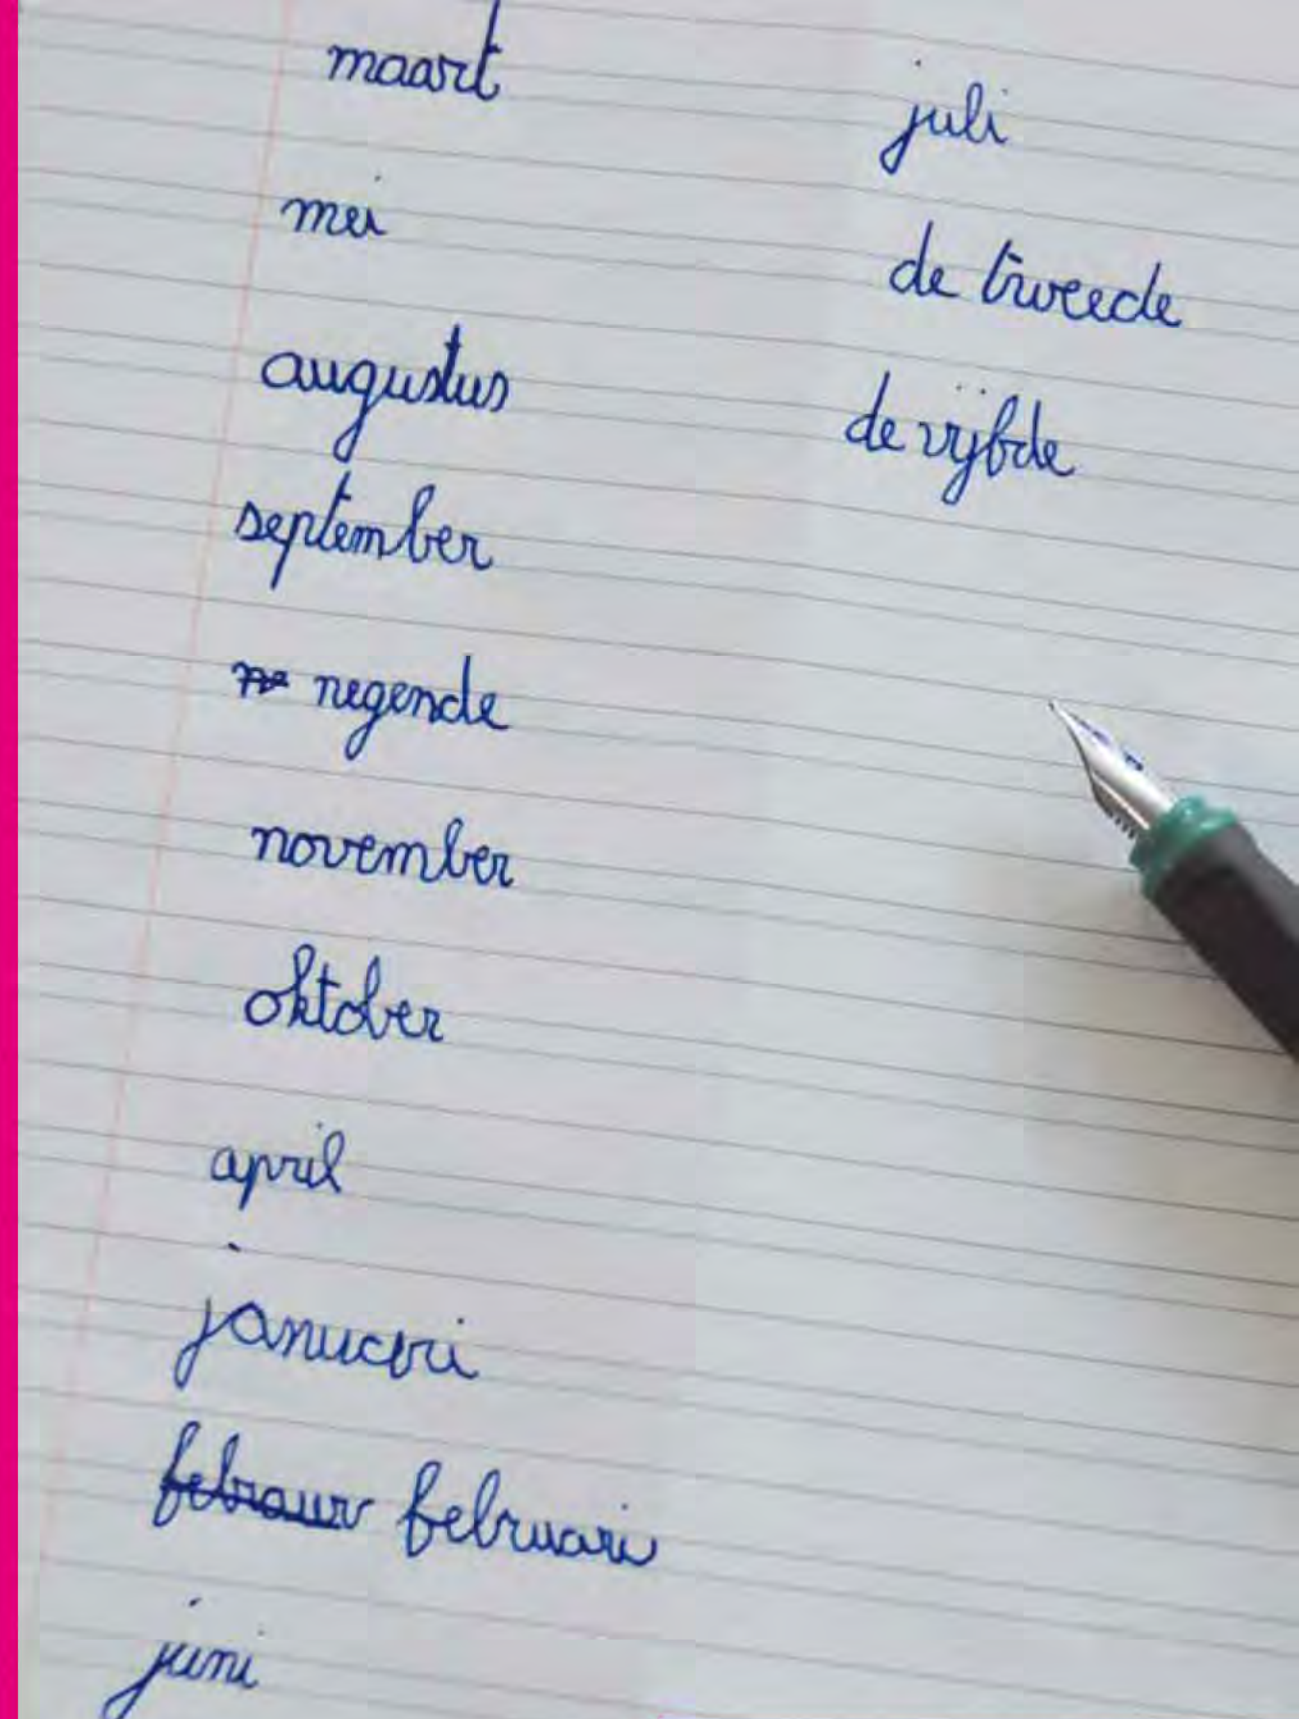 maart
mei
augustus
september
negende
november
oktober
april
januari
februari
juni
juli
de tweede
de vijfde